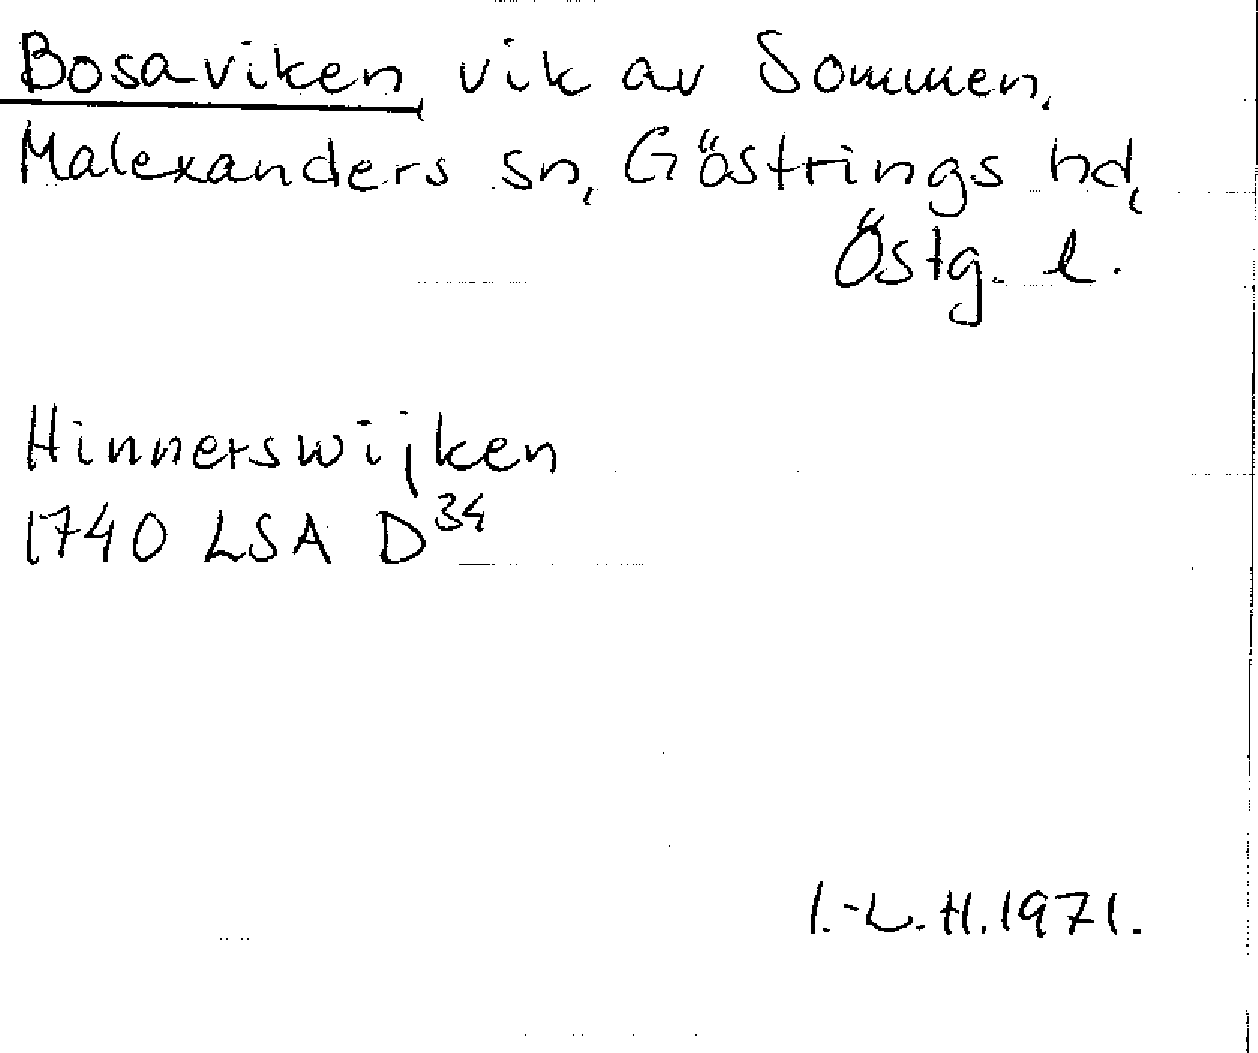 Bosaviken, vik av Sommen,
Malexanders sn, Göstrings hd,
Östg. l.
Hinnerswijken
1740 LSA D³⁴
I.-L. H. 1971.